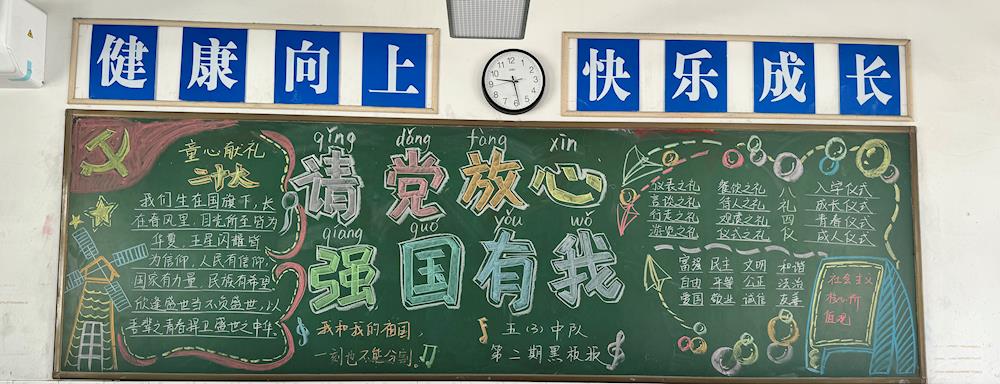 健康向上
快乐成长
12
童心献礼
二十大
我们生在国旗下，长
在春风里，目光所至皆为
华夏，五星闪耀皆
为信仰，人民有信仰，
国家有力量，民族有希望
欣逢盛世当不负盛世，以
吾辈之青春捍卫盛世之中华
qǐng dǎng fàng xīn
请党放心
qiáng guó yǒu wǒ
强国有我
我和我的祖国，
一刻也不能分割。
五（3）中队
第二期黑板报
仪表之礼 餐饮之礼
言谈之礼 待人之礼
行走之礼 观赏之礼
游览之礼 仪式之礼
八礼四仪
入学仪式
成长仪式
青春仪式
成人仪式
富强 民主 文明 和谐
自由 平等 公正 法治
爱国 敬业 诚信 友善
社会主义
核心价
值观